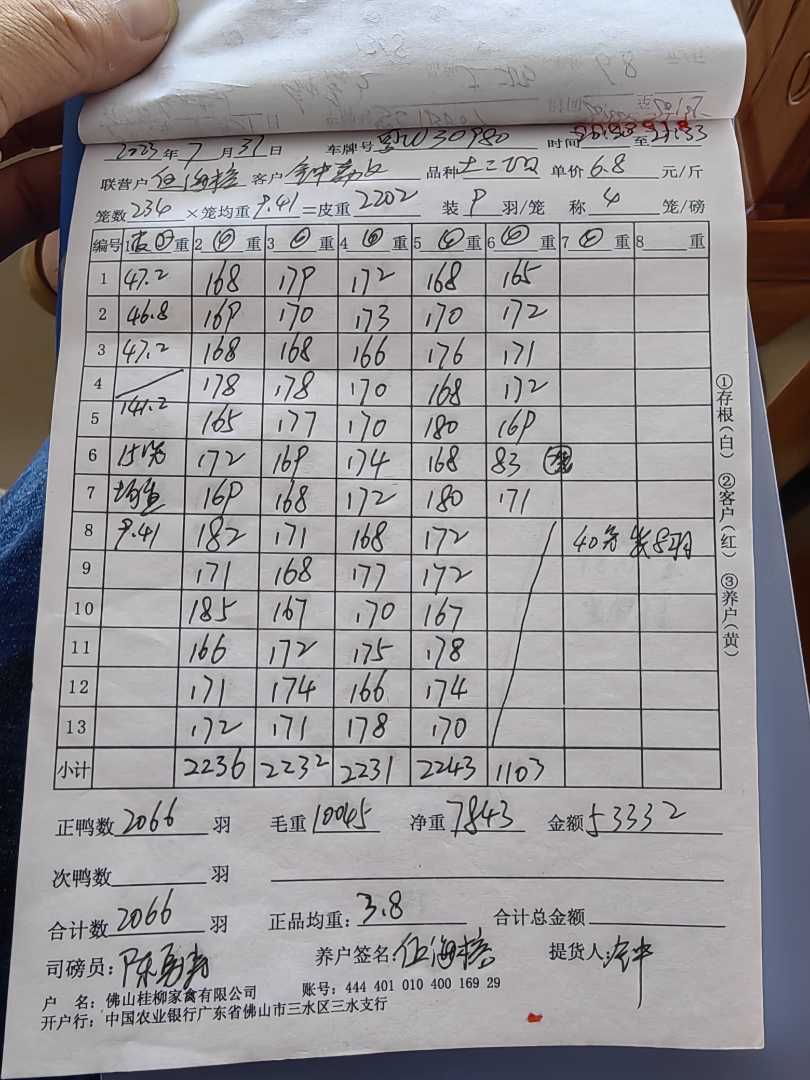 2023年7月31日 车牌号 粤W30980 时间 至
联营户 伍海榕 客户 品种 土二 单价 6.8 元/斤
笼数 234 ×笼均重 9.41 =皮重 2202 装 9 羽/笼 称 4 笼/磅
编号 1 皮 重 2 ④ 重 3 重 4 重 5 重 6 重 7 重 8 重
1 47.2 168 179 172 168 165
2 46.8 169 170 173 170 172
3 47.2 168 168 166 176 171
4 178 178 170 168 172
5 141.2 165 177 170 180 169
6 15笼 172 169 174 168 83
7 均重 169 168 172 180 171
8 9.41 182 171 168 172 40笼装8羽
9 171 168 177 172
10 185 167 170 167
11 166 172 175 178
12 171 174 166 174
13 172 171 178 170
小计 2236 2232 2231 2243 1103
①存根(白) ②客户(红) ③养户(黄)
正鸭数 2066 羽 毛重 10045 净重 7843 金额 53332
次鸭数 羽
合计数 2066 羽 正品均重: 3.8 合计总金额
司磅员: 陈勇 养户签名: 伍海榕 提货人:
户 名: 佛山桂柳家禽有限公司 账号: 444 401 010 400 169 29
开户行: 中国农业银行广东省佛山市三水区三水支行